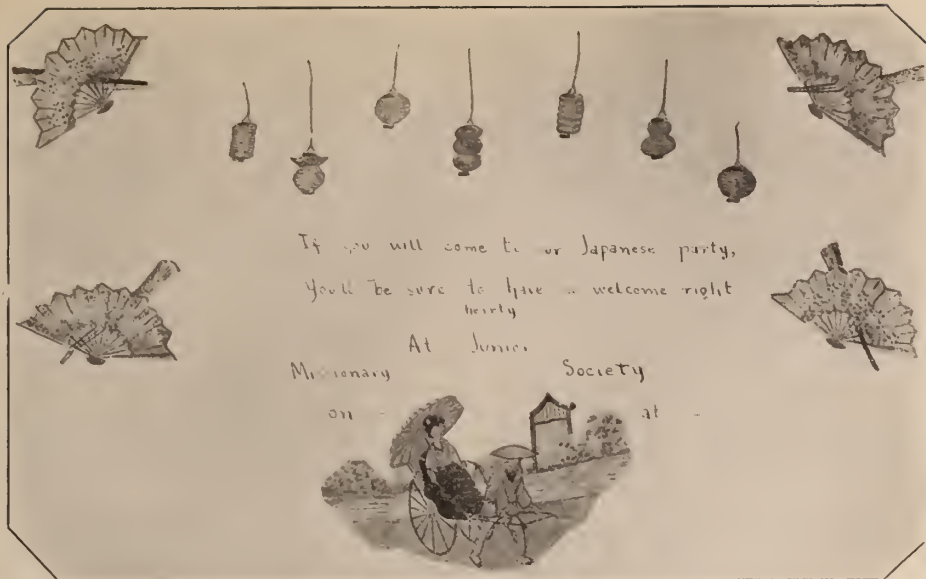 If you will come to our Japanese party,
You'll be sure to have a welcome right
hearty
At Junior
Missionary Society
on - at -